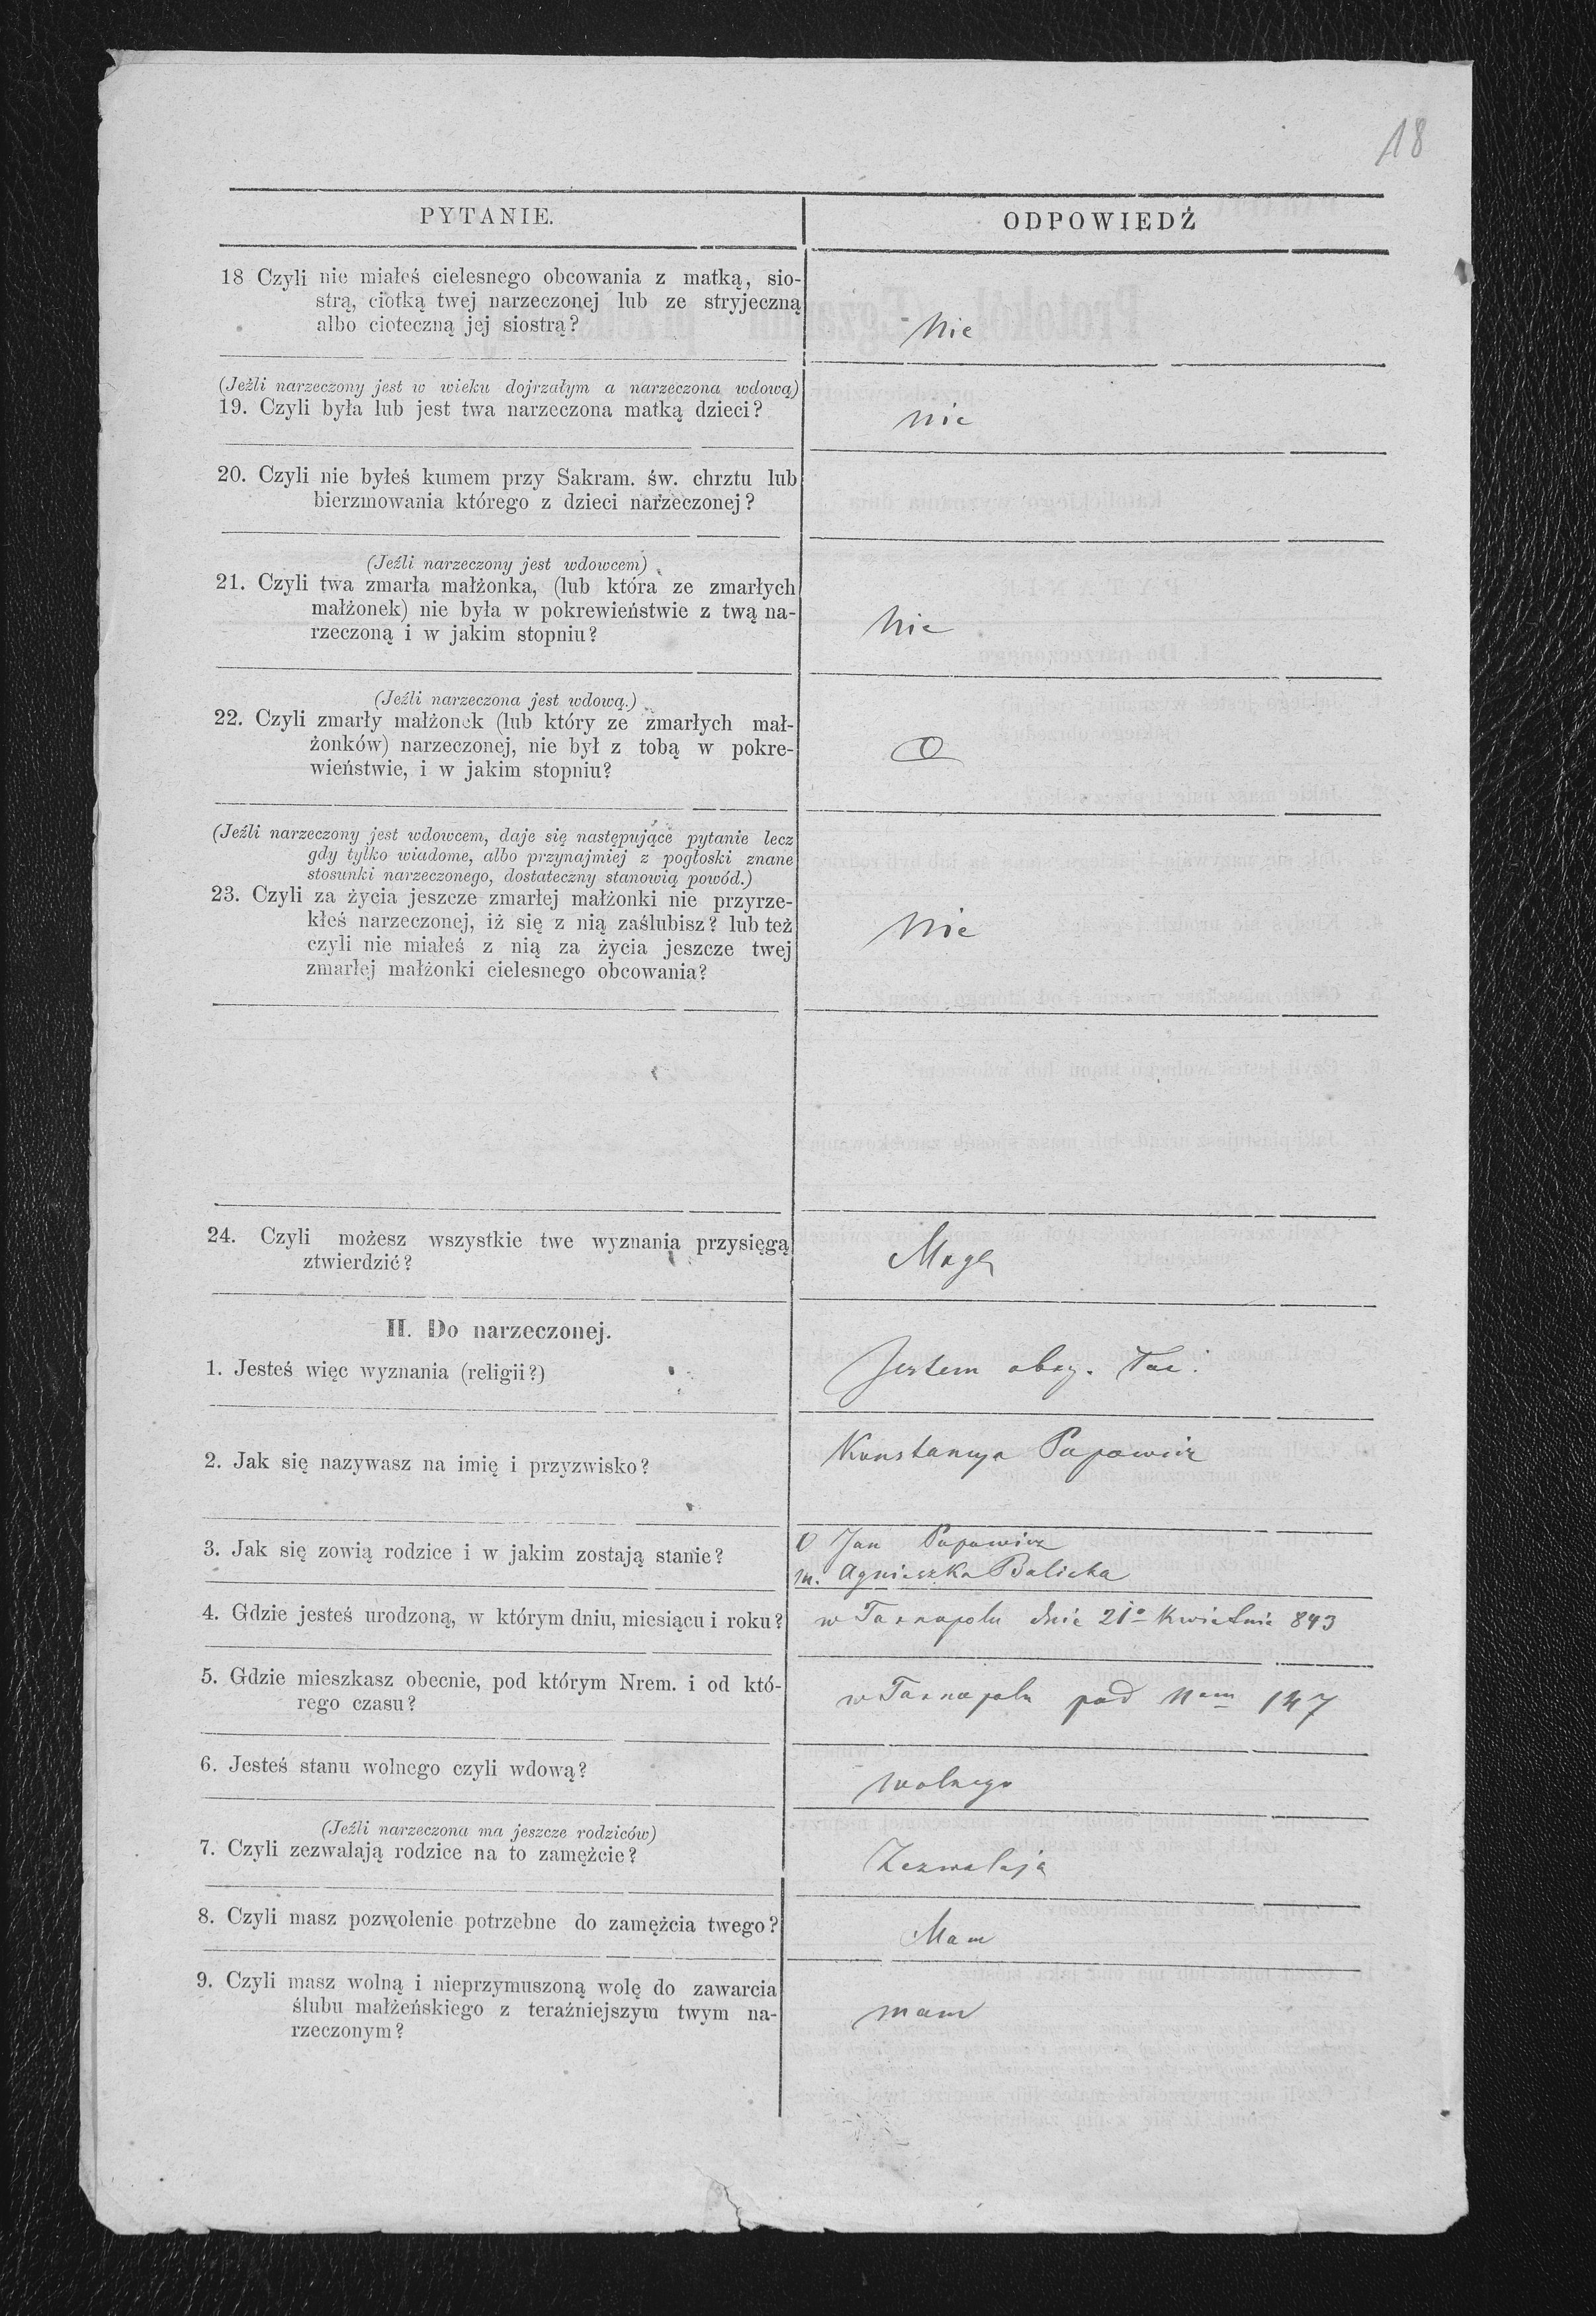 18
PYTANIE.
ODPOWIEDŹ
18 Czyli nie miałeś cielesnego obcowania z matką, sio-
strą, ciotką twej narzeczonej lub ze stryjeczną
albo cioteczną jej siostrą?
Nie
(Jeźli narzeczony jest w wieku dojrzałym a narzeczona wdową)
19. Czyli była lub jest twa narzeczona matką dzieci?
nie
20. Czyli nie byłeś kumem przy Sakram. św. chrztu lub
bierzmowania którego z dzieci narzeczonej?
(Jeźli narzeczony jest wdowcem)
21. Czyli twa zmarła małżonka, (lub która ze zmarłych
małżonek) nie była w pokrewieństwie z twą na-
rzeczoną i w jakim stopniu?
Nie
(Jeźli narzeczona jest wdową.)
22. Czyli zmarły małżonek (lub który ze zmarłych mał-
żonków) narzeczonej, nie był z tobą w pokre-
wieństwie, i w jakim stopniu?
O
(Jeźli narzeczony jest wdowcem, daje się następujące pytanie lecz
gdy tylko wiadome, albo przynajmiej z pogłoski znane
stosunki narzeczonego, dostateczny stanowią powód.)
23. Czyli za życia jeszcze zmarłej małżonki nie przyrze-
kłeś narzeczonej, iż się z nią zaślubisz? lub też
czyli nie miałeś z nią za życia jeszcze twej
zmarłej małżonki cielesnego obcowania?
Nie
24. Czyli możesz wszystkie twe wyznania przysięgą
ztwierdzić?
Mogę
II. Do narzeczonej.
1. Jesteś więc wyznania (religii?)
Jestem obrz. łac:
2. Jak się nazywasz na imię i przyzwisko?
Konstancya Popowicz
3. Jak się zowią rodzice i w jakim zostają stanie?
O Jan Popowicz
m. Agnieszka Balicka
4. Gdzie jesteś urodzoną, w którym dniu, miesiącu i roku?
w Tarnopolu dnia 21o Kwietnia 843
5. Gdzie mieszkasz obecnie, pod którym Nrem. i od któ-
rego czasu?
w Tarnopolu pod Nem 147
6. Jesteś stanu wolnego czyli wdową?
wolnego
(Jeźli narzeczona ma jeszcze rodziców)
7. Czyli zezwalają rodzice na to zamęźcie?
Zezwalają
8. Czyli masz pozwolenie potrzebne do zamęźcia twego?
Mam
9. Czyli masz wolną i nieprzymuszoną wolę do zawarcia
ślubu małżeńskiego z teraźniejszym twym na-
rzeczonym?
mam